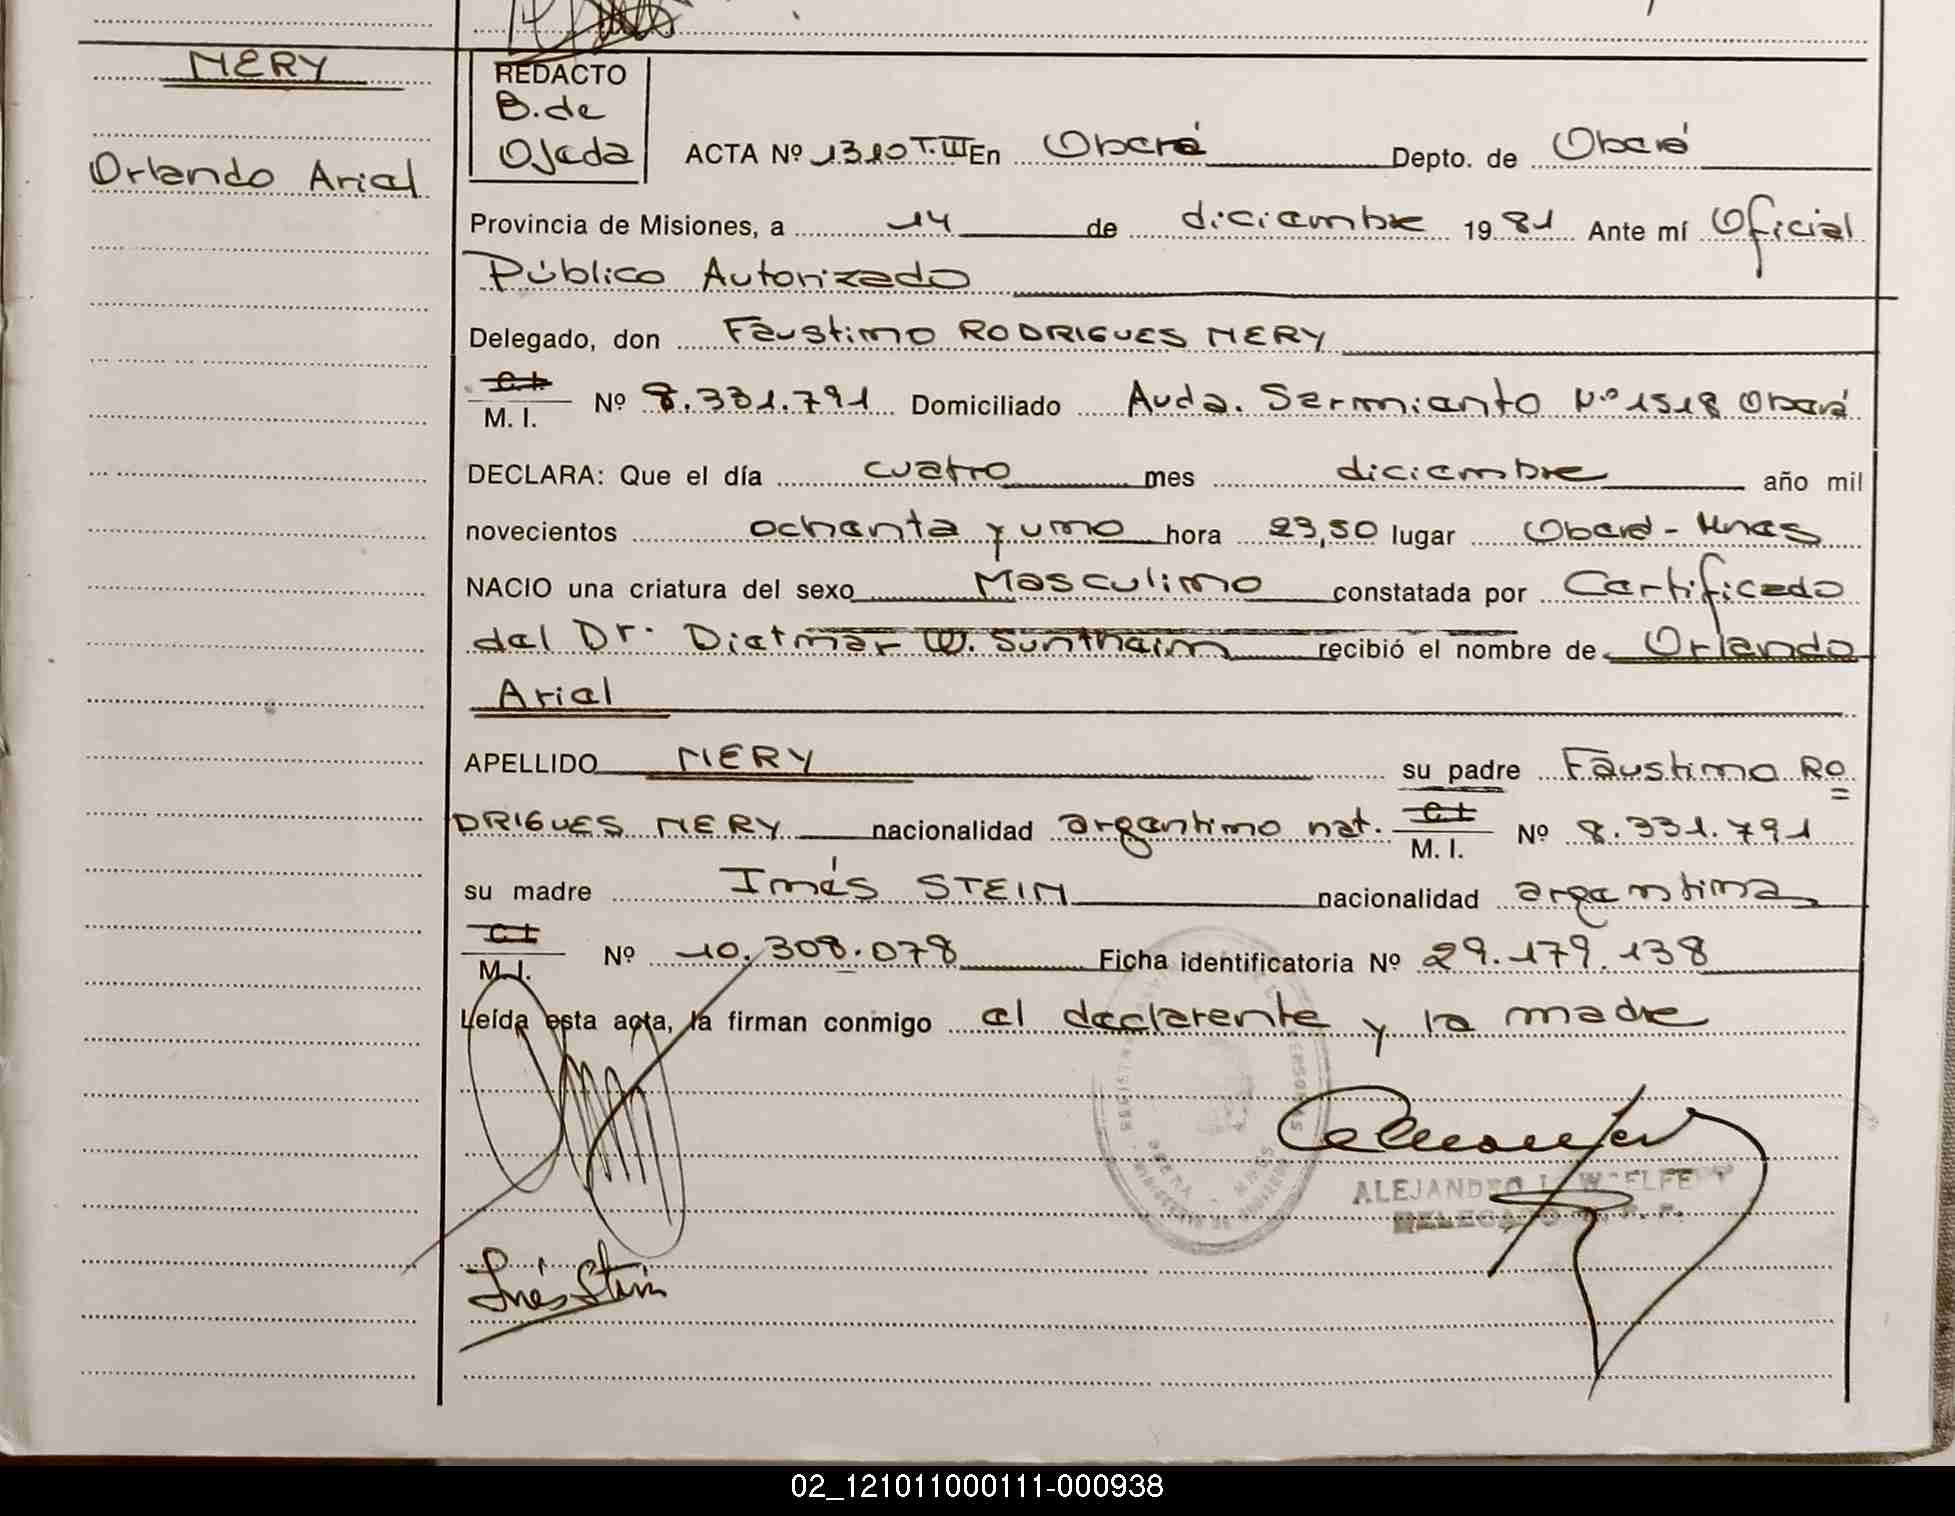 NERY
Orlando Ariel
REDACTO
B. de
Ojeda
ACTA Nº 1310 T. III En Oberá Depto. de Oberá
Provincia de Misiones, a 14 de diciembre 1981 Ante mí Oficial
Público Autorizado
Delegado, don Faustino RODRIGUES NERY
C.I.
M. I. Nº 8.331.791 Domiciliado Avda. Sarmiento Nº 1518 Oberá
DECLARA: Que el día cuatro mes diciembre año mil
novecientos ochenta y uno hora 23,50 lugar Oberá - Mnes
NACIO una criatura del sexo Masculino constatada por Certificado
del Dr. Dietmar W. Sontheim recibió el nombre de Orlando
Ariel
APELLIDO NERY su padre Faustino RO
DRIGUES NERY nacionalidad argentino nat. C.I. M. I. Nº 8.331.791
su madre Inés STEIN nacionalidad argentina
C.I.
M.I. Nº 10.308.078 Ficha identificatoria Nº 29.179.138
Leída esta acta, la firman conmigo el declarente y la madre
Inés Stein
ALEJANDRO
DELEGADO
02_121011000111-000938